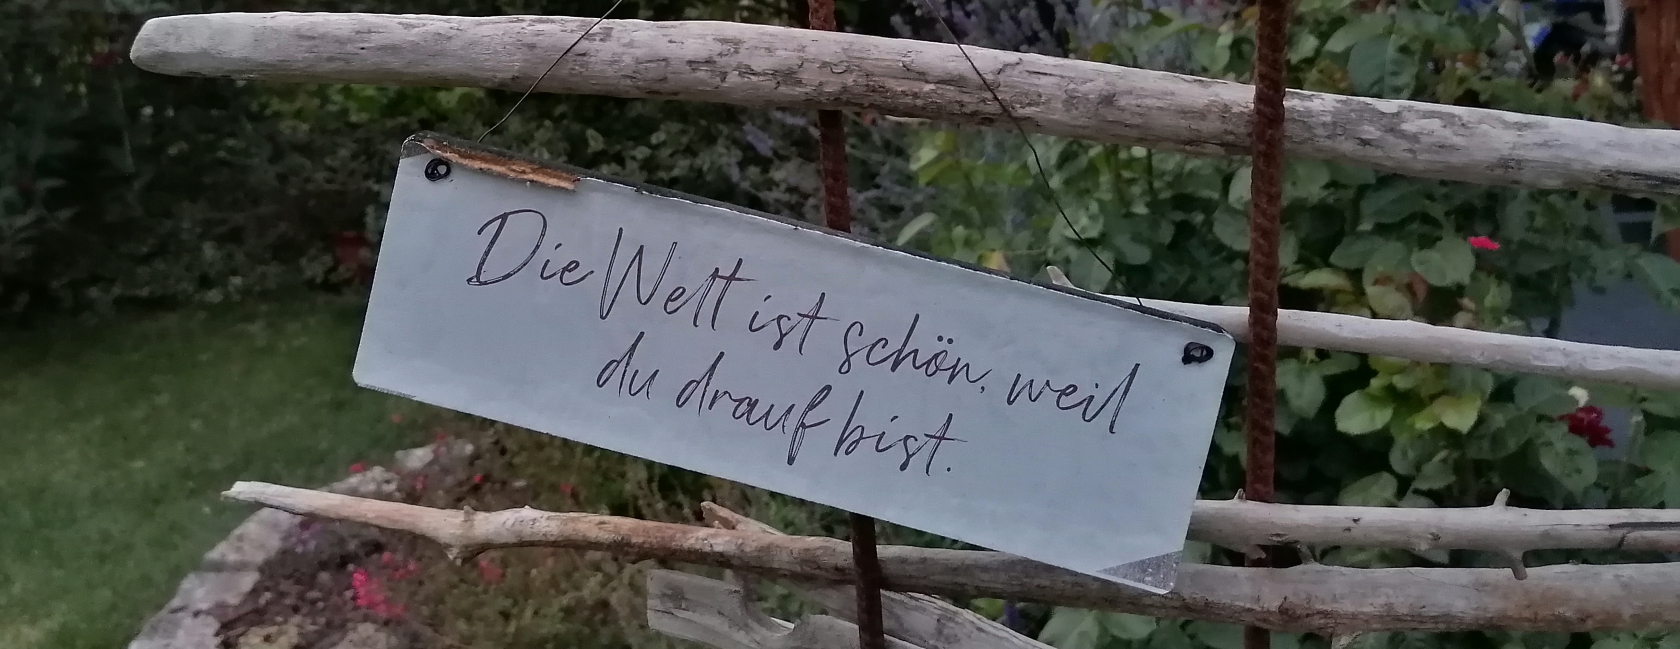 Die Welt ist schön, weil
du drauf bist.